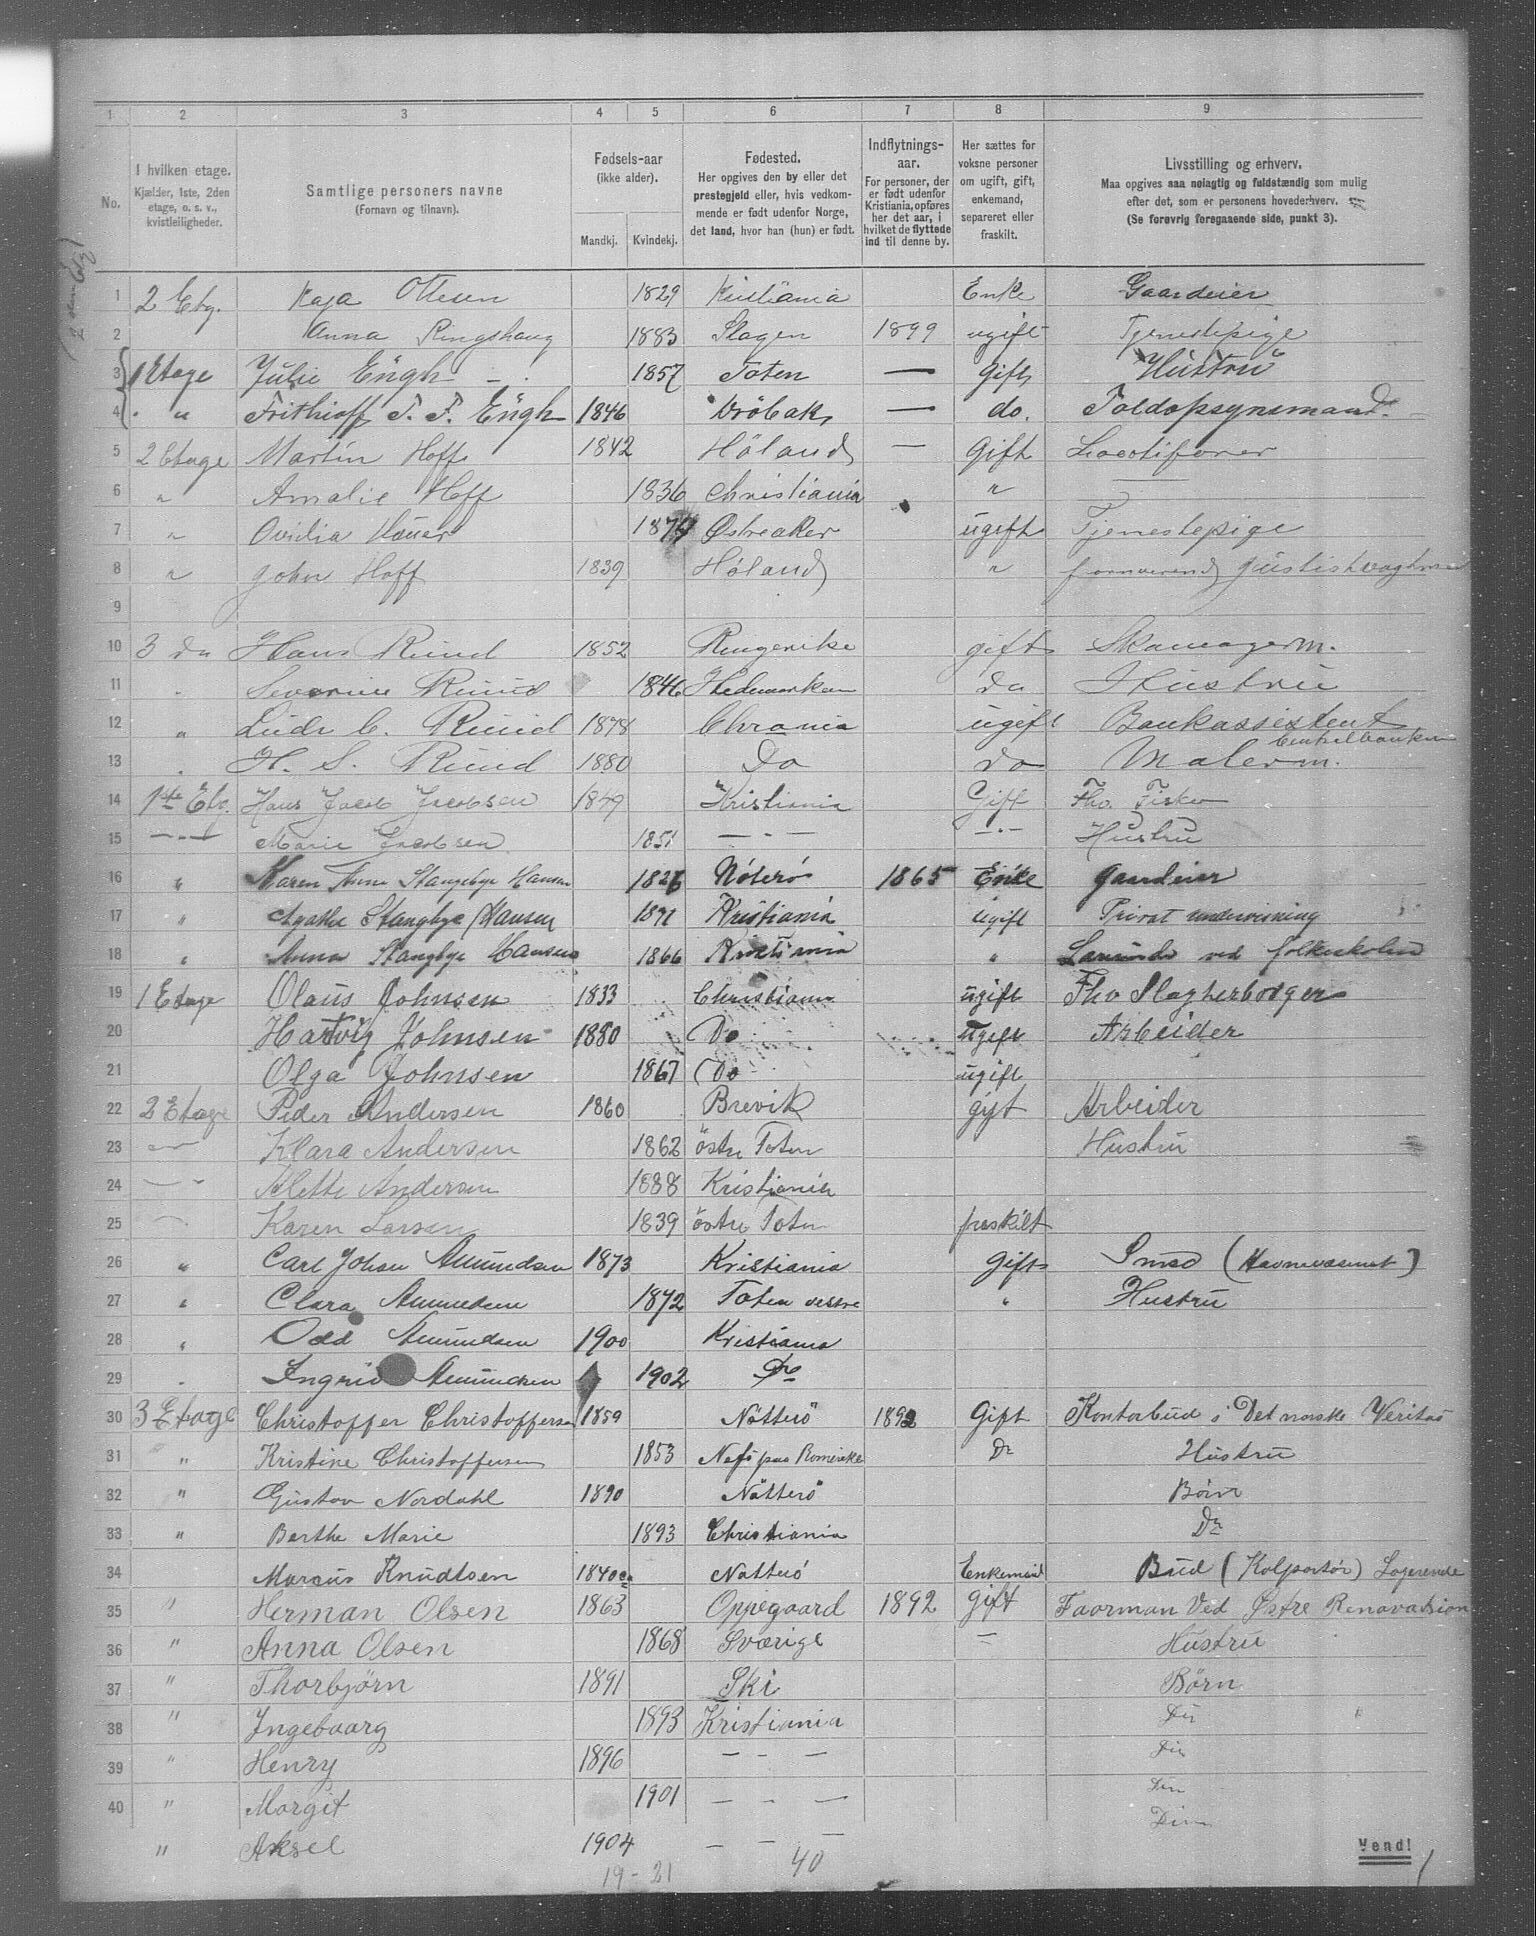 1 2 3 4 5 6 7 8 9
No.
I hvilken etage.
Kjælder, 1ste, 2den
etage, o. s. v.,
kvistleiligheder.
Samtlige personers navne
(Fornavn og tilnavn).
Fødsels-aar
(ikke alder).
Mandkj. Kvindekj.
Fødested.
Her opgives den by eller det
prestegjeld eller, hvis vedkom-
mende er født udenfor Norge,
det land, hvor han (hun) er født.
Indflytnings-
aar.
For personer, der
er født udenfor
Kristiania, opføres
her det aar, i
hvilket de flyttede
ind til denne by.
Her sættes for
voksne personer
om ugift, gift,
enkemand,
separeret eller
fraskilt.
Livsstilling og erhverv.
Maa opgives saa nøiagtig og fuldstændig som mulig
efter det, som er personens hovederhverv.
(Se forøvrig foregaaende side, punkt 3).
1 2 Etg. Kaja Ottesen 1829 Kristiania Enke Gaardeier
2 Anna Ringshaug 1883 Slagen 1899 ugift Tjenestepige
3 1 Etage Julie Engh 1857 Toten — Gift Hustru
4 " Frithioff T. F. Engh 1846 Dröbak — do. Toldopsynsmand.
5 2 Etage Martin Hoff 1842 Höland — Gift
6 " Amalie Hoff 1836 Christiania "
7 " Ovidia Hauer 1874 Østreaker ugift Tjenestepige
8 " John Hoff 1839 Høland " fornværend
9
10 3 do Hans Ruud 1852 Ringerike gift Skomagerm.
11 " Severine Ruud 1846 Hedemarken do Hustru
12 " Ludv C. Ruud 1878 Chrania ugift Bankassistent Centralbanken
13 " H. S. Ruud 1880 Do do Malerm.
14 1ste Etg. Hans Jacob Jacobsen 1849 Kristiania Gift Fhv. Fisker
15 — " — Marie Jacobsen 1851 — " — — " — Hustru
16 " Karen Anne Stangebye Hansen 1826 Nøterø 1865 Enke Gaardeier
17 " Agathe Stangbye Hansen 1871 Kristiania ugift Privat undervisning
18 " Anna Stangbye Hansen 1866 Kristiania " Lærerinde ved folkeskolen
19 1 Etage Olaus Johnsen 1833 Christiania ugift Fhv Slagterborger
20 Hartvig Johnsen 1880 Do ugift Arbeider
21 Olga Johnsen 1867 Do ugift
22 2 Etage Peder Andersen 1860 Brevik gift Arbeider
23 Klara Andersen 1862 östre Toten Hustru
24 Alette Andersen 1888 Kristiania
25 Karen Larsen 1839 östre Toten fraskilt
26 " Carl Johan Amundsen 1873 Kristiania Gift Smed (Havnevæsenet)
27 " Clara Amundsen 1872 Toten vestre " Hustru
28 " Odd Amundsen 1900 Kristiania
29 " Ingrid Amundsen 1902 Do
30 3 Etage Christoffer Christoffersen 1859 Nötterö 1892 Gift Kontorbud i Det norske Veritas
31 " Kristine Christoffersen 1853 Næs paa Romerike Do Hustru
32 " Gustav Nordahl 1890 Nötterö Börn
33 " Berthe Marie 1893 Christiania Do
34 Marcus Knudtsen 1840 Nötterö Enkemand Bud (Kolportör) Logerende
35 " Herman Olsen 1863 Oppegaard 1892 Gift Faorman Ved Østre Renovation
36 " Anna Olsen 1868 Sværige — Hustru
37 " Thorbjørn 1891 Ski Børn
38 " Ingebaarg 1893 Kristiania Do
39 " Henry 1896 — — — Do
40 " Margit 1901 — — — Do
" Aksel 1904 — — — Do
19 - 21 40
Vend!